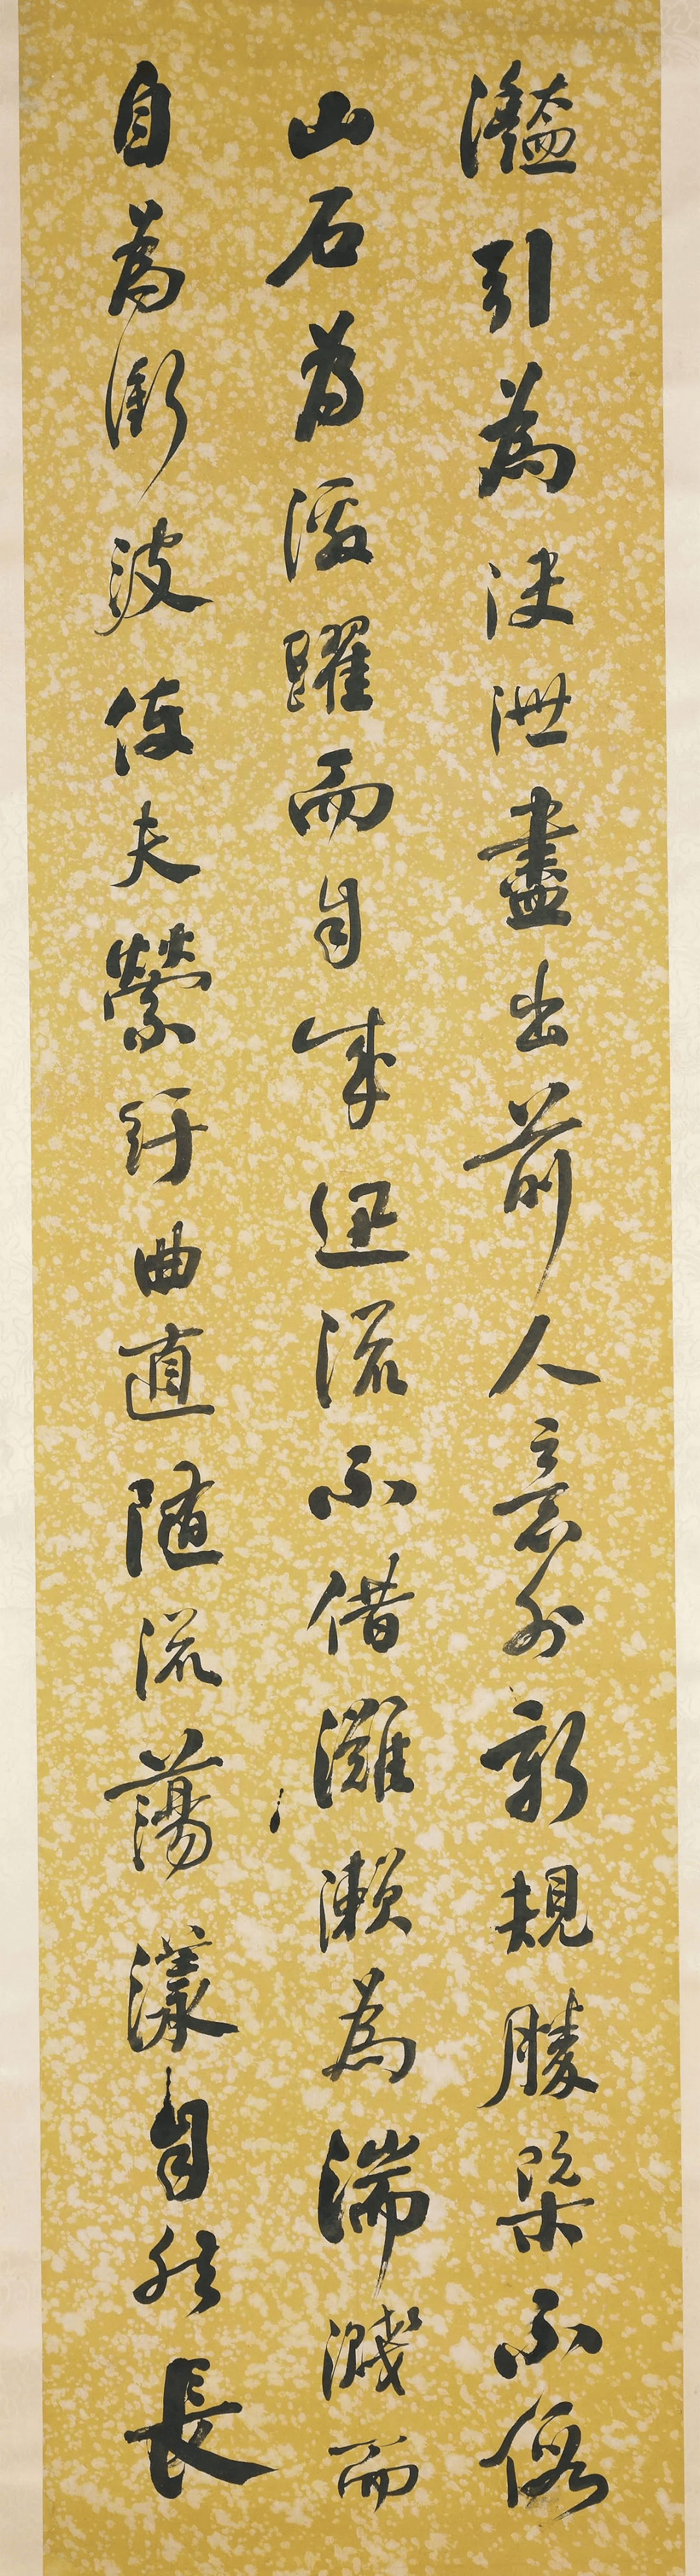 灩引為決泄盡出前人意外新規勝槩不假
山石為激躍而自成迅流不借灘瀨為湍濺而
自為衝波使夫縈紆曲直隨流蕩漾自然長